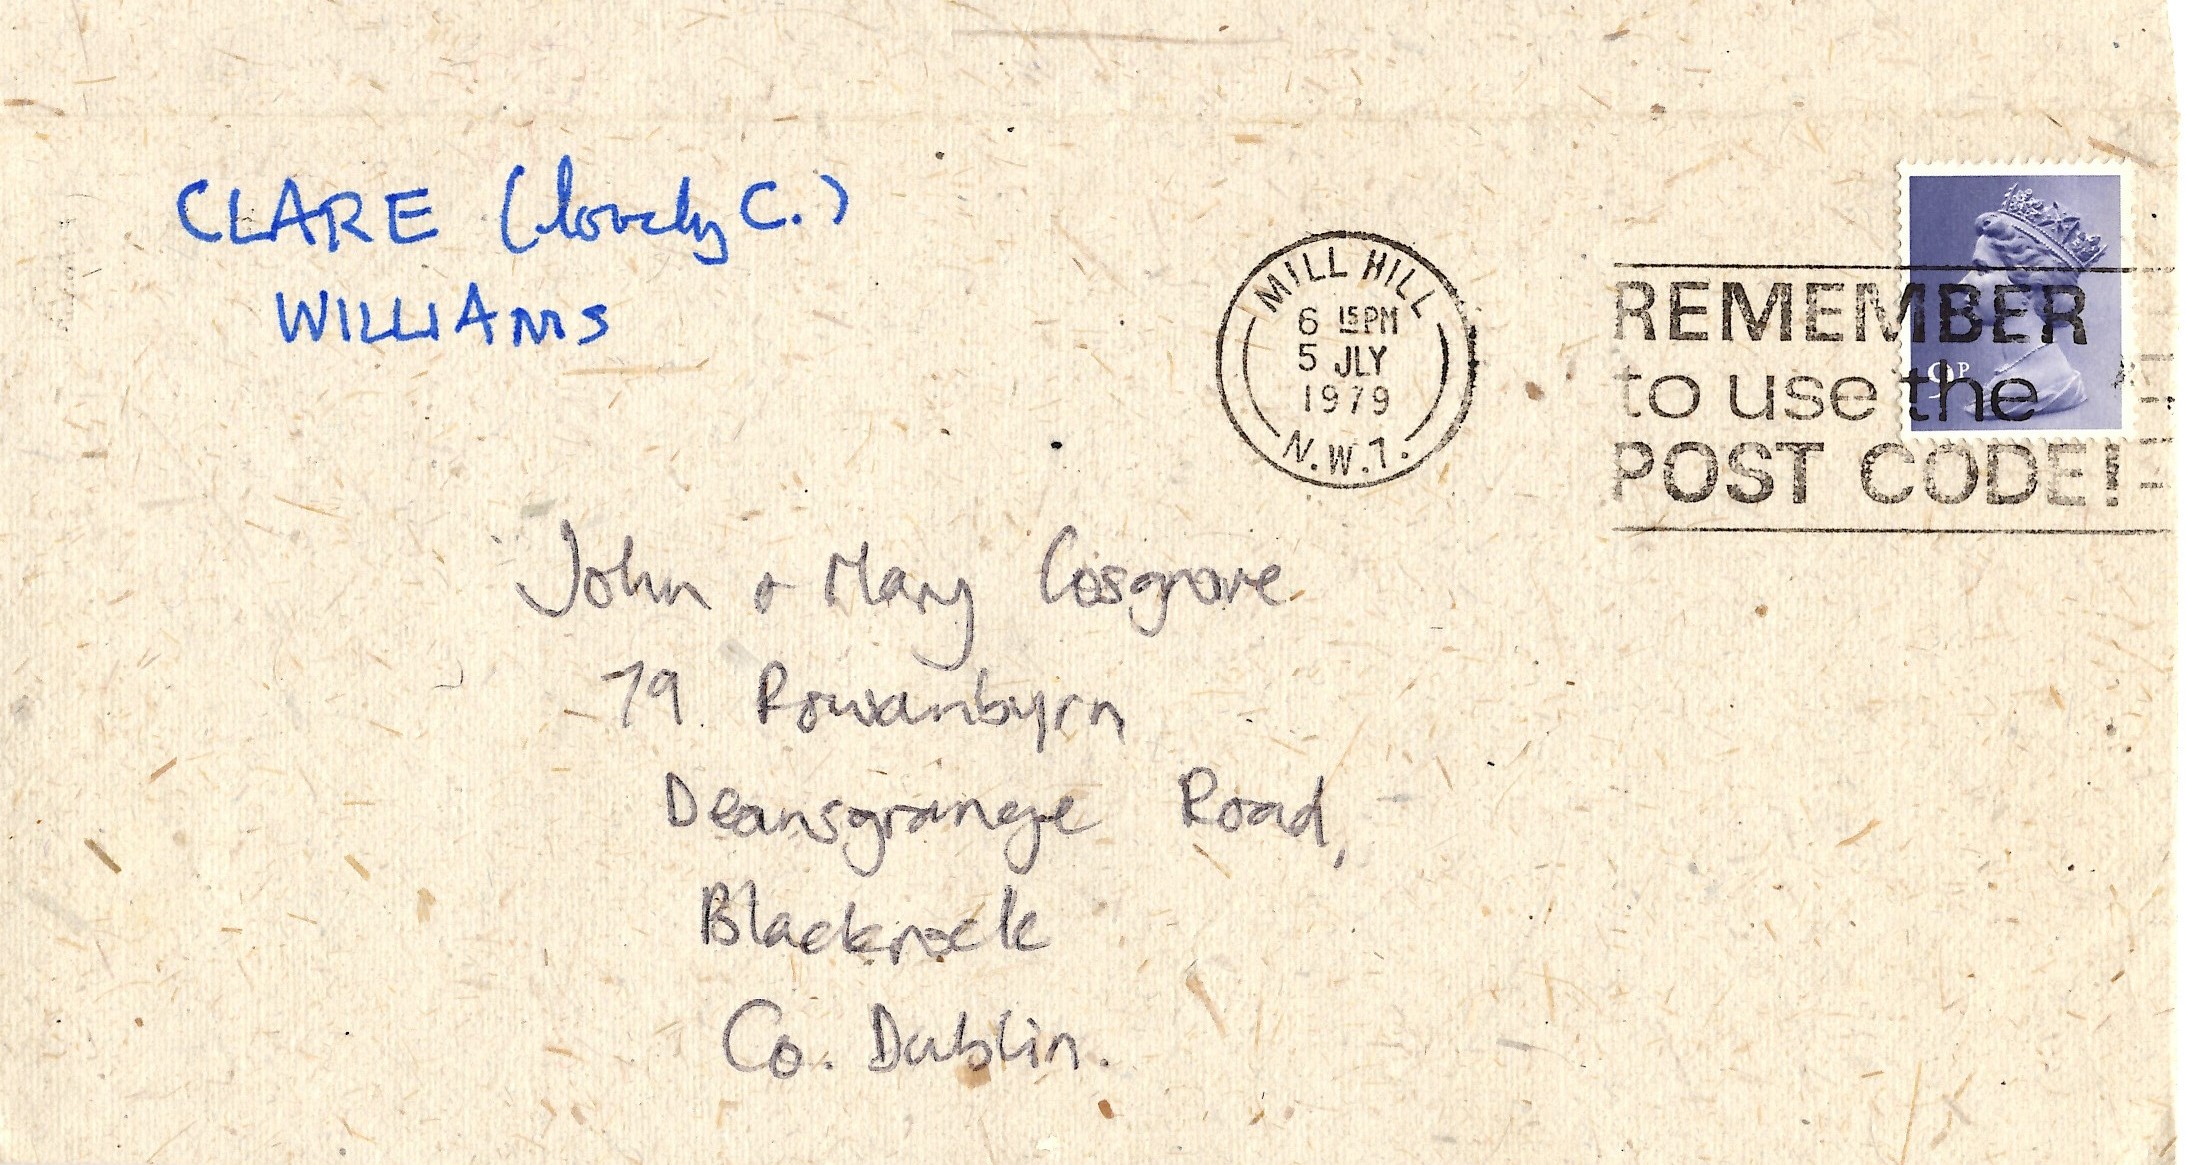 CLARE (lovely C.)
WILLIAMS
MILL HILL
6 15PM
5 JLY
1979
N.W.7.
REMEMBER
to use the
POST CODE!
9P
John & Mary Cosgrove
79 Rowanbyrn
Deansgrange Road,
Blackrock
Co. Dublin.